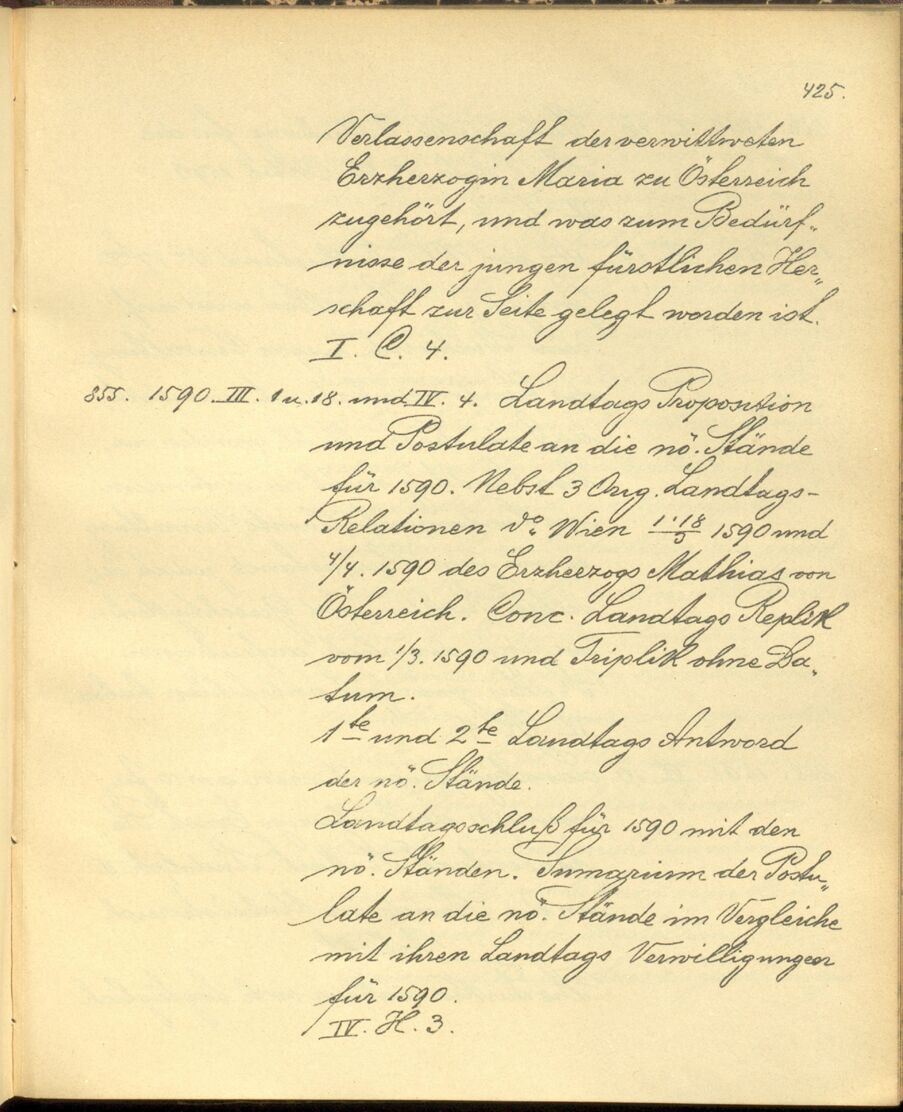 425.
Verlassenschaft der verwittweten
Erzherzogin Maria zu Österreich
zugehört, und was zum Bedürf„
nisse der jungen fürstlichen Her„
schaft zur Seite gelegt worden ist.
I. C. 4.
855. 1590. III. 1 u. 18. und IV. 4. Landtags Proposition
und Postulate an die nö. Stände
für 1590. Nebst 3 Orig. Landtags-
Relationen do Wien 1. 18/3 1590 und
4/4. 1590 des Erzherzogs Mathias von
Österreich. Conc. Landtags Replik
vom 1/3. 1590 und Triplik ohne Da„
tum.
1te und 2te Landtags Antword
der nö. Stände.
Landtagsschluß für 1590 mit den
nö. Ständen. Sumarium der Postu„
late an die nö. Stände im Vergleiche
mit ihren Landtags Verwilligungen
für 1590.
IV. H. 3.